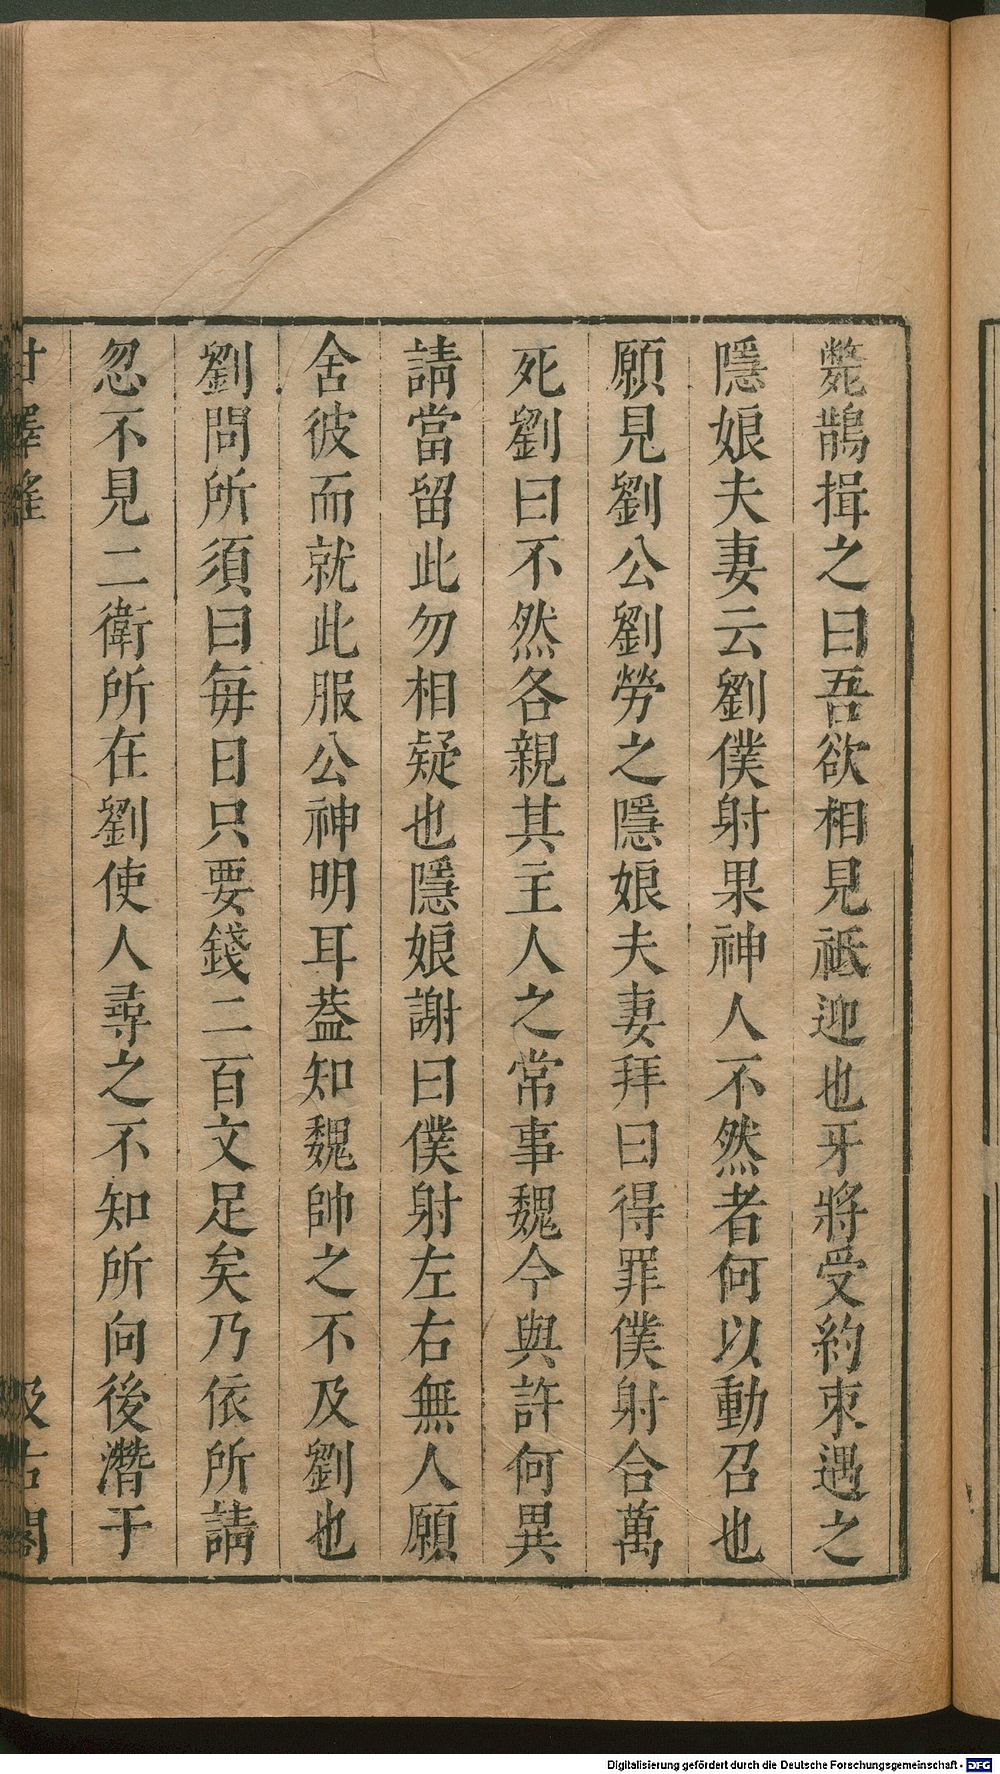 斃鵲揖之曰吾欲相見祗迎也牙將受約束遇之
隱娘夫妻云劉僕射果神人不然者何以動召也
願見劉公劉勞之隱娘夫妻拜曰得罪僕射合萬
死劉曰不然各親其主人之常事魏今與許何異
請當留此勿相疑也隱娘謝曰僕射左右無人願
舍彼而就此服公神明耳葢知魏帥之不及劉也
劉問所須曰每日只要錢二百文足矣乃依所請
忽不見二衛所在劉使人尋之不知所向後潛于
甘澤謠 汲古閣
Digitalisierung gefördert durch die Deutsche Forschungsgemeinschaft - DFG